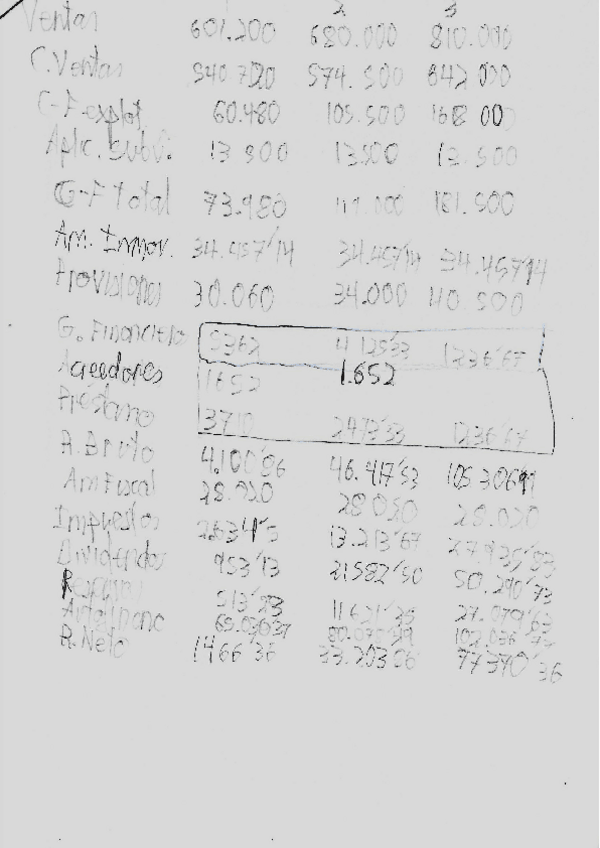 2 3
Ventas 601.200 680.000 810.000
C.Ventas 540.720 574.500 642 000
C-F.explot. 60.480 105.500 168 000
Aplic. Subv. 13 500 13.500 13.500
C-F Total 73.980 119.000 181.500
Am. Inmov. 34.457'14 34.457'14 34.457'14
Aprovisiona 30.060 34.000 40.500
G. Financieros 5362 4 125'33 1236'67
Acreedores 1652 1.652
Préstamo 3710 2473'33 1236'67
R. Bruto 46.417'53
Am Fiscal 28.020 28.020
Impuestos 13.213'67
Dividendos 953'13 21582'50 50.290'73
513'23 11621'35 27.079'63
R. Neto 1466'36 33.203'86 77370'36